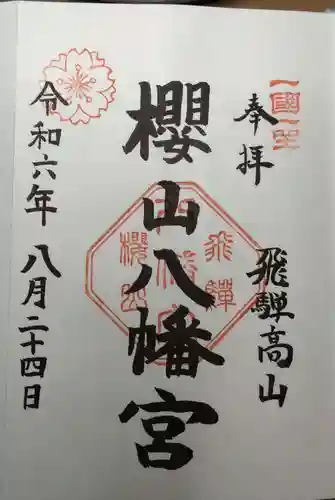 奉拝
一國一社
飛騨高山
櫻山八幡宮
飛騨
櫻山
八幡宮
令和六年 八月二十四日